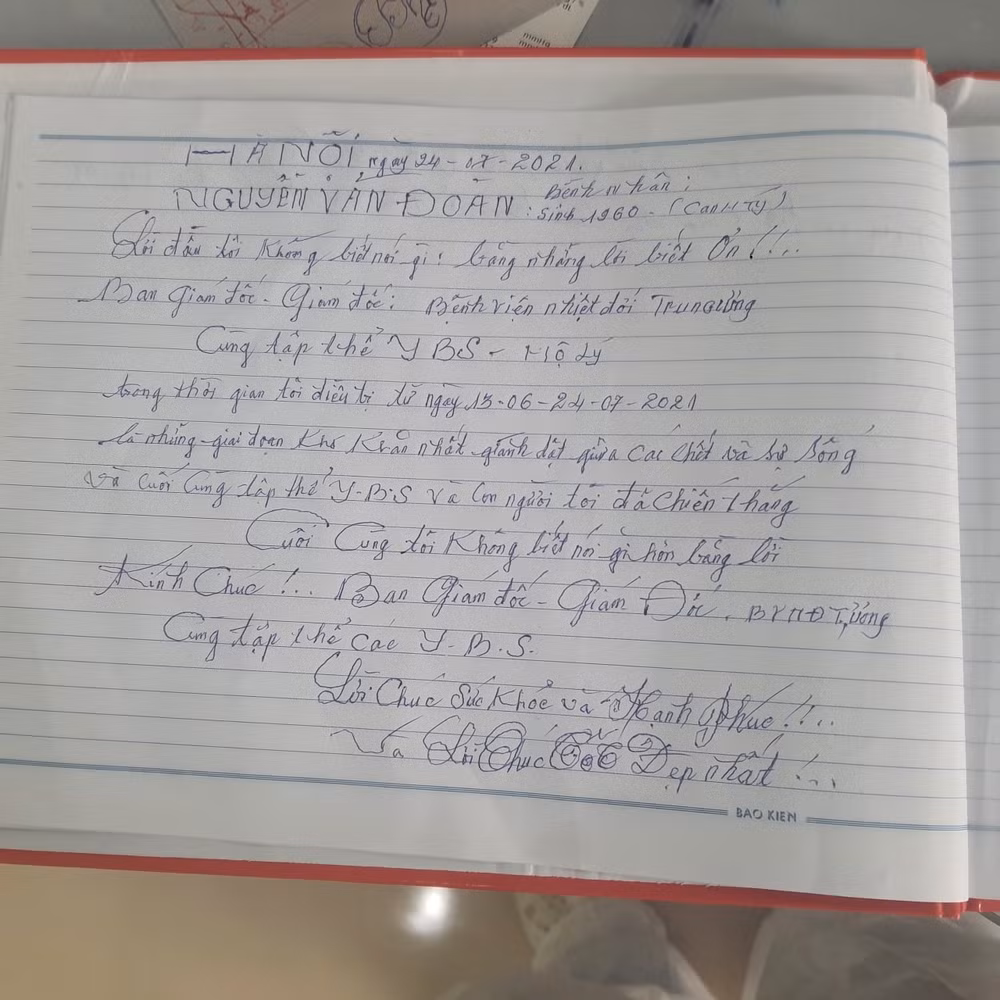 HÀ NỘI ngày 24-07-2021.
Bệnh nhân:
NGUYỄN VĂN ĐOÀN: Sinh 1960-(Canh Tý)
Lời đầu tôi không biết nói gì: bằng những lời biết Ơn!!..
Ban Giám đốc- Giám đốc: Bệnh viện nhiệt đới Trung ương
Cùng tập thể Y BS- Hộ Lý
trong thời gian tôi điều trị từ ngày 15-06-24-07-2021
là những giai đoạn khó khăn nhất giành dật giữa các chết và sự sống
và cuối cùng tập thể Y-B.S và con người tôi đã chiến thắng
Cuối Cùng tôi không biết nói gì hơn bằng lời
Kính Chúc!... Ban Giám đốc- Giám Đốc. BVNĐ T,Ương
Cùng tập thể các Y-B.S.
Lời Chúc Sức Khỏe và Hạnh Phúc!!..
Và Lời Chúc Tốt Đẹp nhất!...
BAO KIEN